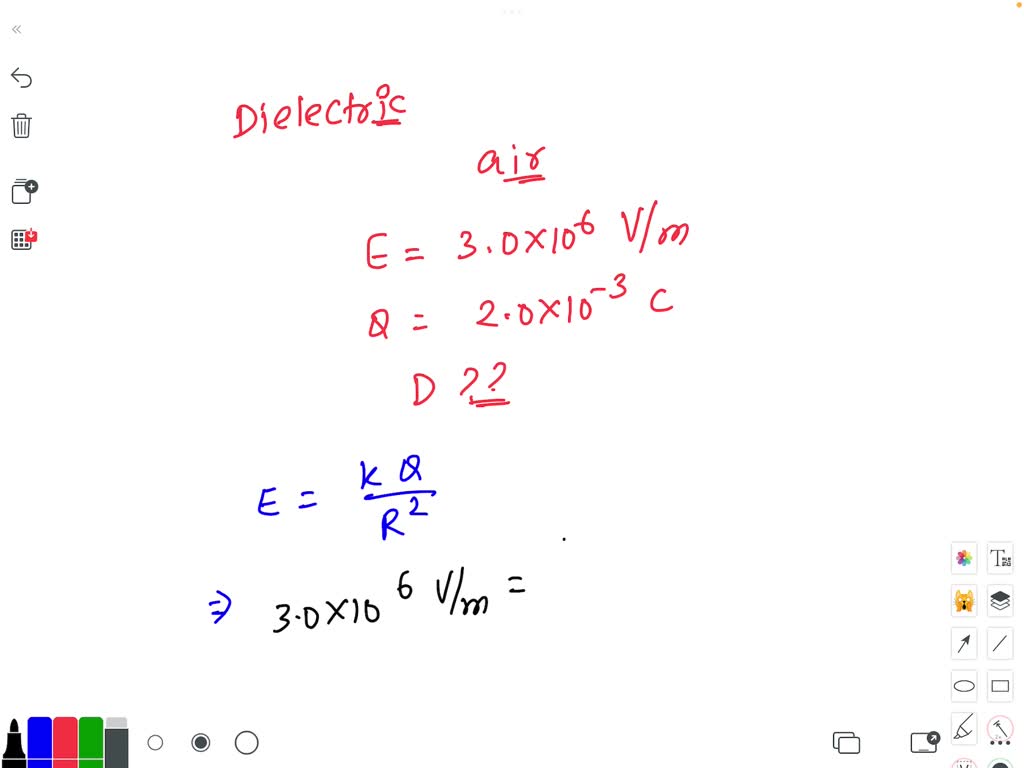 Dielectric
air
E = 3.0×10⁶ V/m
Q = 2.0×10⁻³ C
D ??
E = kQ/R²
⇒ 3.0×10⁶ V/m =